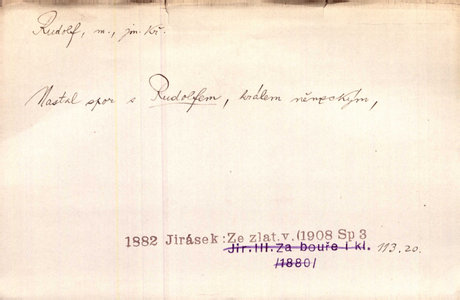 Rudolf, m., jm. kř.
Nastal spor s Rudolfem, králem německým,
1882 Jirásek: Ze zlat.v.(1908 Sp 3
Jir.III.Za bouře i kl. 113.20.
/1880/